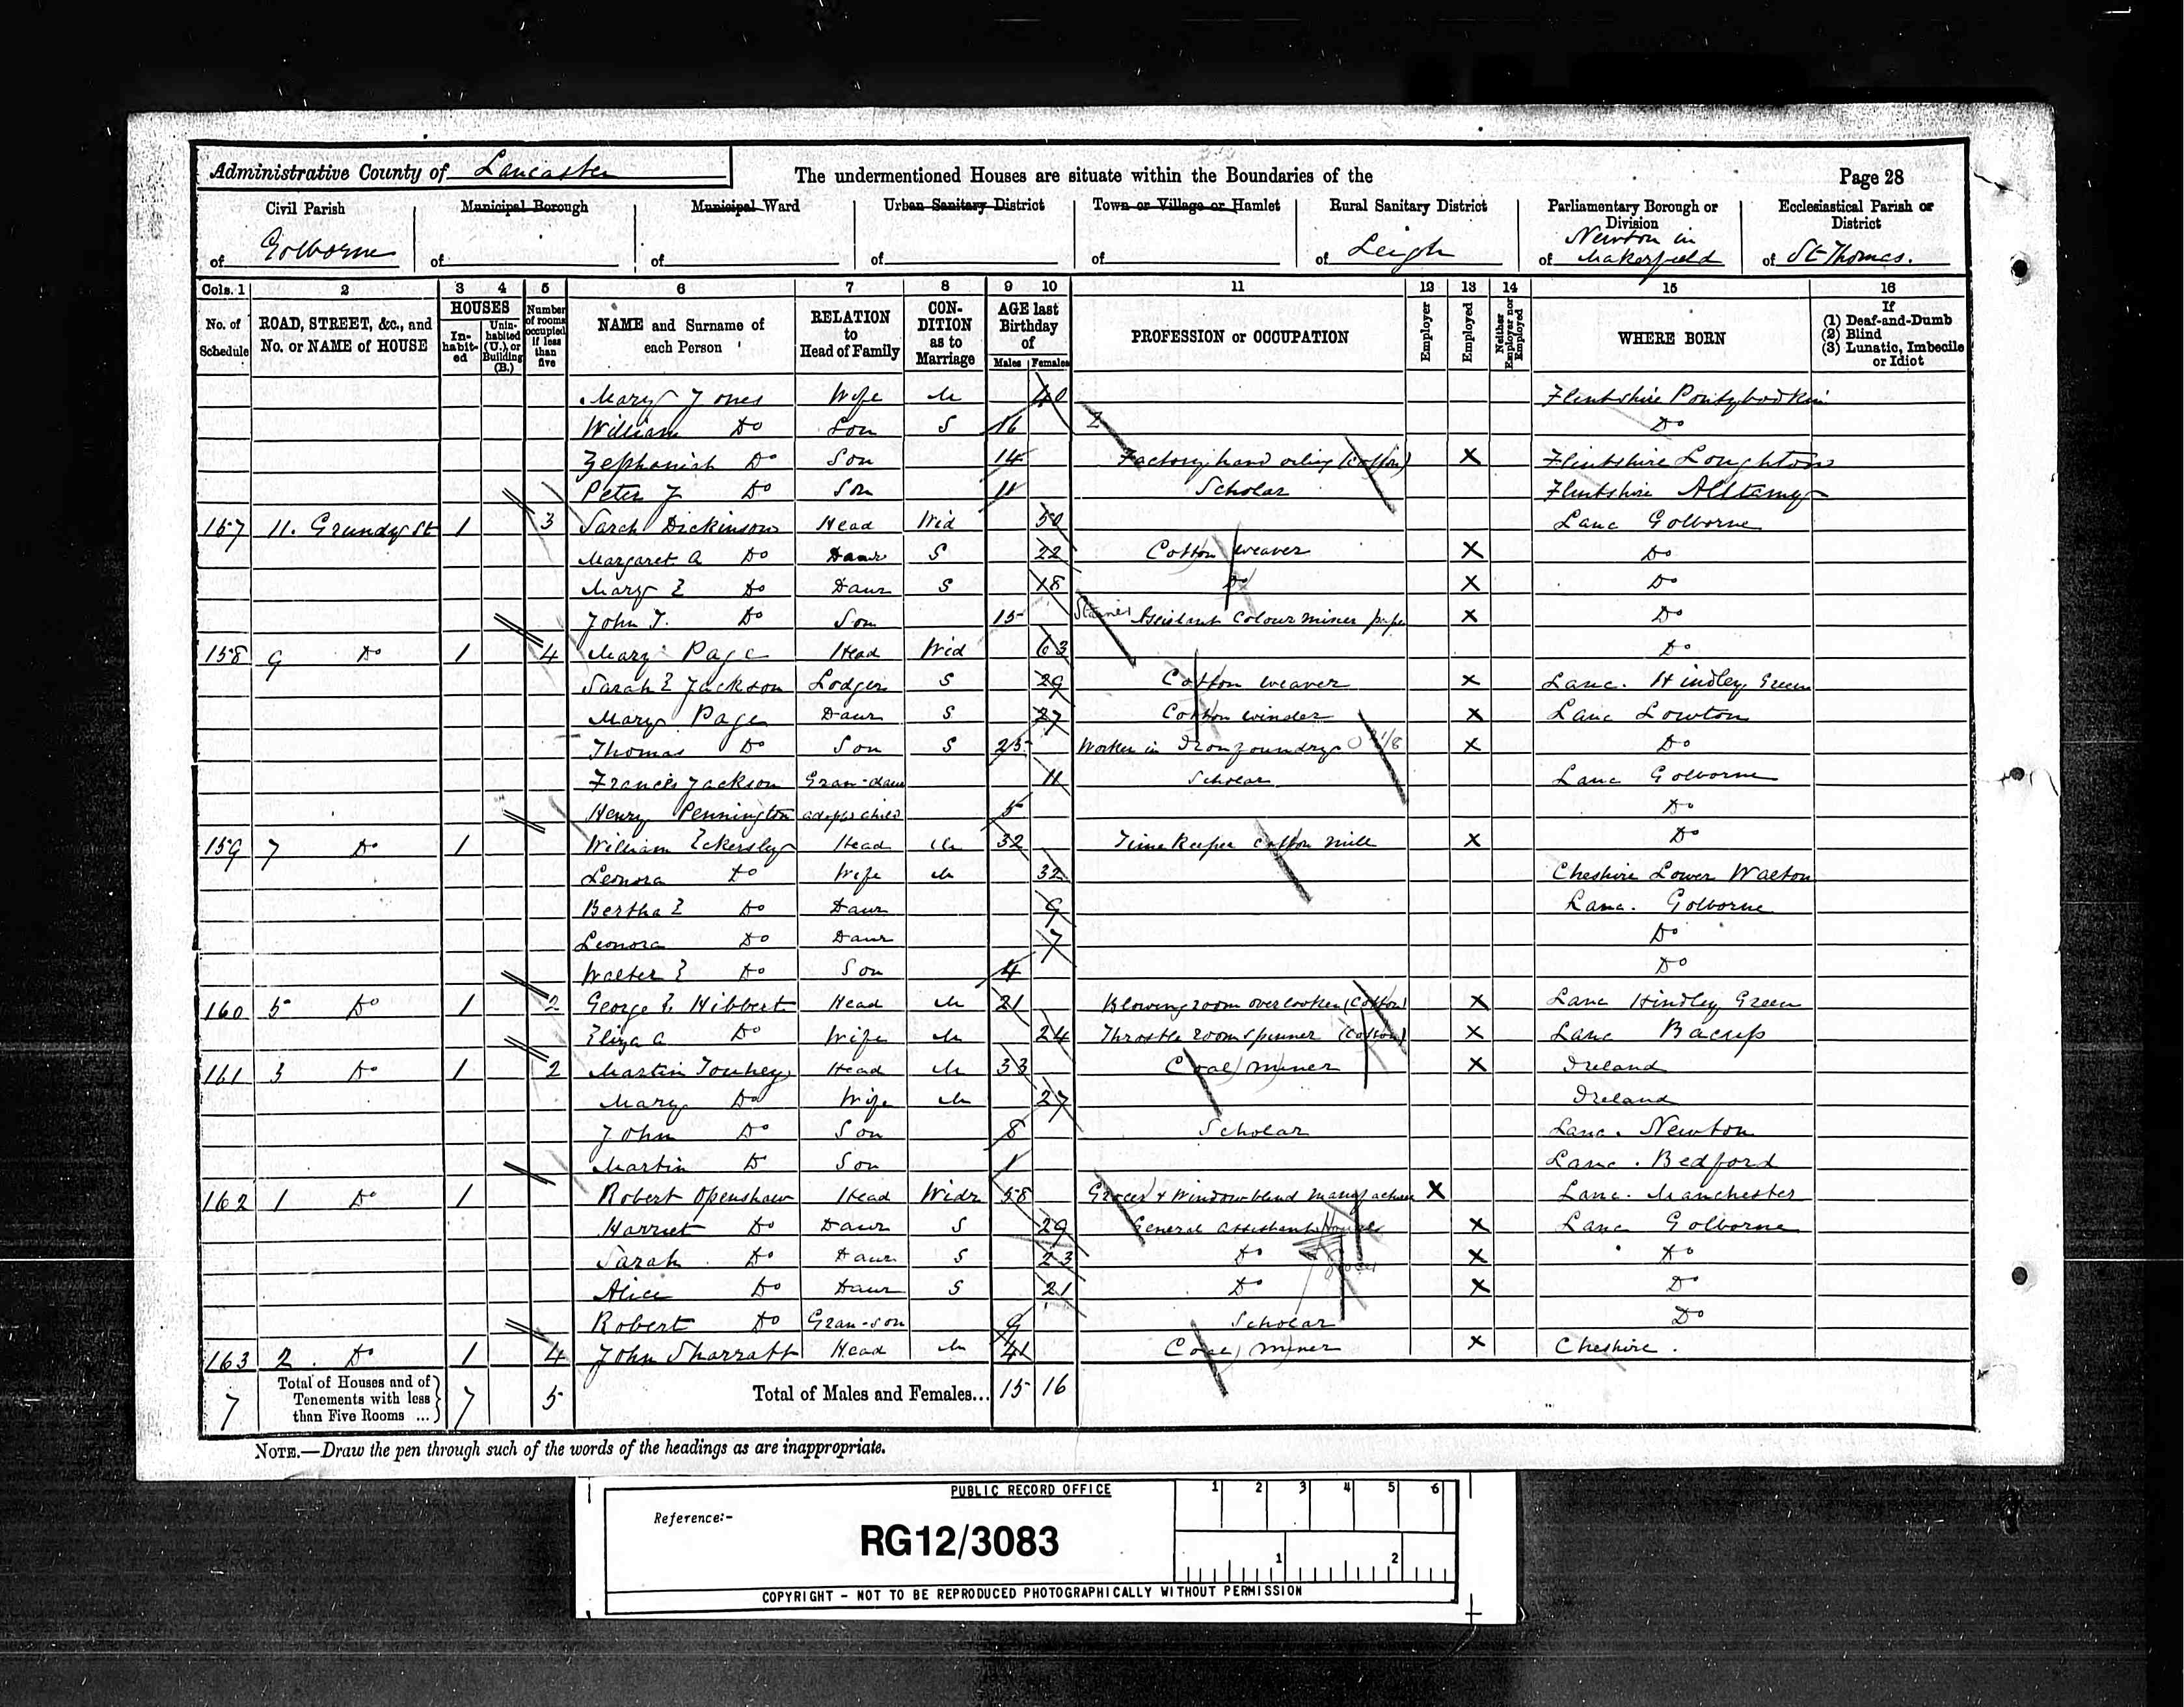 Administrative County of Lancaster
The undermentioned Houses are situate within the Boundaries of the
Page 28
Civil Parish
of Golborne
Municipal Borough
of
Municipal Ward
of
Urban Sanitary District
of
Town or Village or Hamlet
of
Rural Sanitary District
of Leigh
Parliamentary Borough or Division
of Newton in Makerfield
Ecclesiastical Parish or District
of St Thomas.
Cols. 1 2 3 4 5 6 7 8 9 10 11 12 13 14 15 16
No. of Schedule
ROAD, STREET, &c., and No. or NAME of HOUSE
HOUSES
In-habit-ed
Unin-habited (U.), or Building (B.)
Number of rooms occupied if less than five
NAME and Surname of each Person
RELATION to Head of Family
CON-DITION as to Marriage
AGE last Birthday of
Males Females
PROFESSION or OCCUPATION
Employer
Employed
Neither Employer nor Employed
WHERE BORN
If (1) Deaf-and-Dumb (2) Blind (3) Lunatic, Imbecile or Idiot
Mary Jones Wife M 40 Flintshire
William Do Son S 16 Do
Zephaniah Do Son 14 Factory hand oiling (Cotton) X Flintshire Loughton
Peter J Do Son 11 Scholar Flintshire Alltamy
157 11. Grundy St 1 3 Sarah Dickinson Head Wid 50 Lanc Golborne
Margaret A Do Daur S 22 Cotton weaver X Do
Mary E Do Daur S 18 Do X Do
John T. Do Son 15 Stainer Assistant Colour mixer paper X Do
158 9 Do 1 4 Mary Page Head Wid 63 Do
Sarah E Jackson Lodger S 29 Cotton weaver X Lanc. Hindley Green
Mary Page Daur S 27 Cotton winder X Lanc Lowton
Thomas Do Son S 25 Worker in Iron foundry X Do
Francis Jackson Gran-daur 11 Scholar Lanc Golborne
Henry Pennington adopt child 5 Do
159 7 Do 1 William Eckersley Head M 32 Time Keeper Cotton mill X Do
Leonora Do Wife M 32 Cheshire Lower Walton
Bertha E Do Daur 9 Lanc. Golborne
Leonora Do Daur 7 Do
Walter E Do Son 4 Do
160 5 Do 1 2 George E Hibbert Head M 21 Blowing room overlooker (Cotton) X Lanc Hindley Green
Eliza A Do Wife M 24 Throstle room spinner (Cotton) X Lanc Bacup
161 3 Do 1 2 Martin Touhey Head M 33 Coal miner X Ireland
Mary Do Wife M 27 Ireland
John Do Son 8 Scholar Lanc. Newton
Martin Do Son 1 Lanc. Bedford
162 1 Do 1 Robert Openshaw Head Widr 58 Grocer & Window blind manufacturer X Lanc. Manchester
Harriet Do Daur S 29 General assistant X Lanc Golborne
Sarah Do Daur S 23 Do Grocer X Do
Alice Do Daur S 21 Do X Do
Robert Do Gran-son 9 Scholar Do
163 2. Do 1 4 John Sharratt Head M 41 Coal miner X Cheshire.
7 Total of Houses and of Tenements with less than Five Rooms ... 7 5 Total of Males and Females... 15 16
NOTE.—Draw the pen through such of the words of the headings as are inappropriate.
PUBLIC RECORD OFFICE
1 2 3 4 5 6
Reference:-
RG12/3083
1 2
COPYRIGHT - NOT TO BE REPRODUCED PHOTOGRAPHICALLY WITHOUT PERMISSION